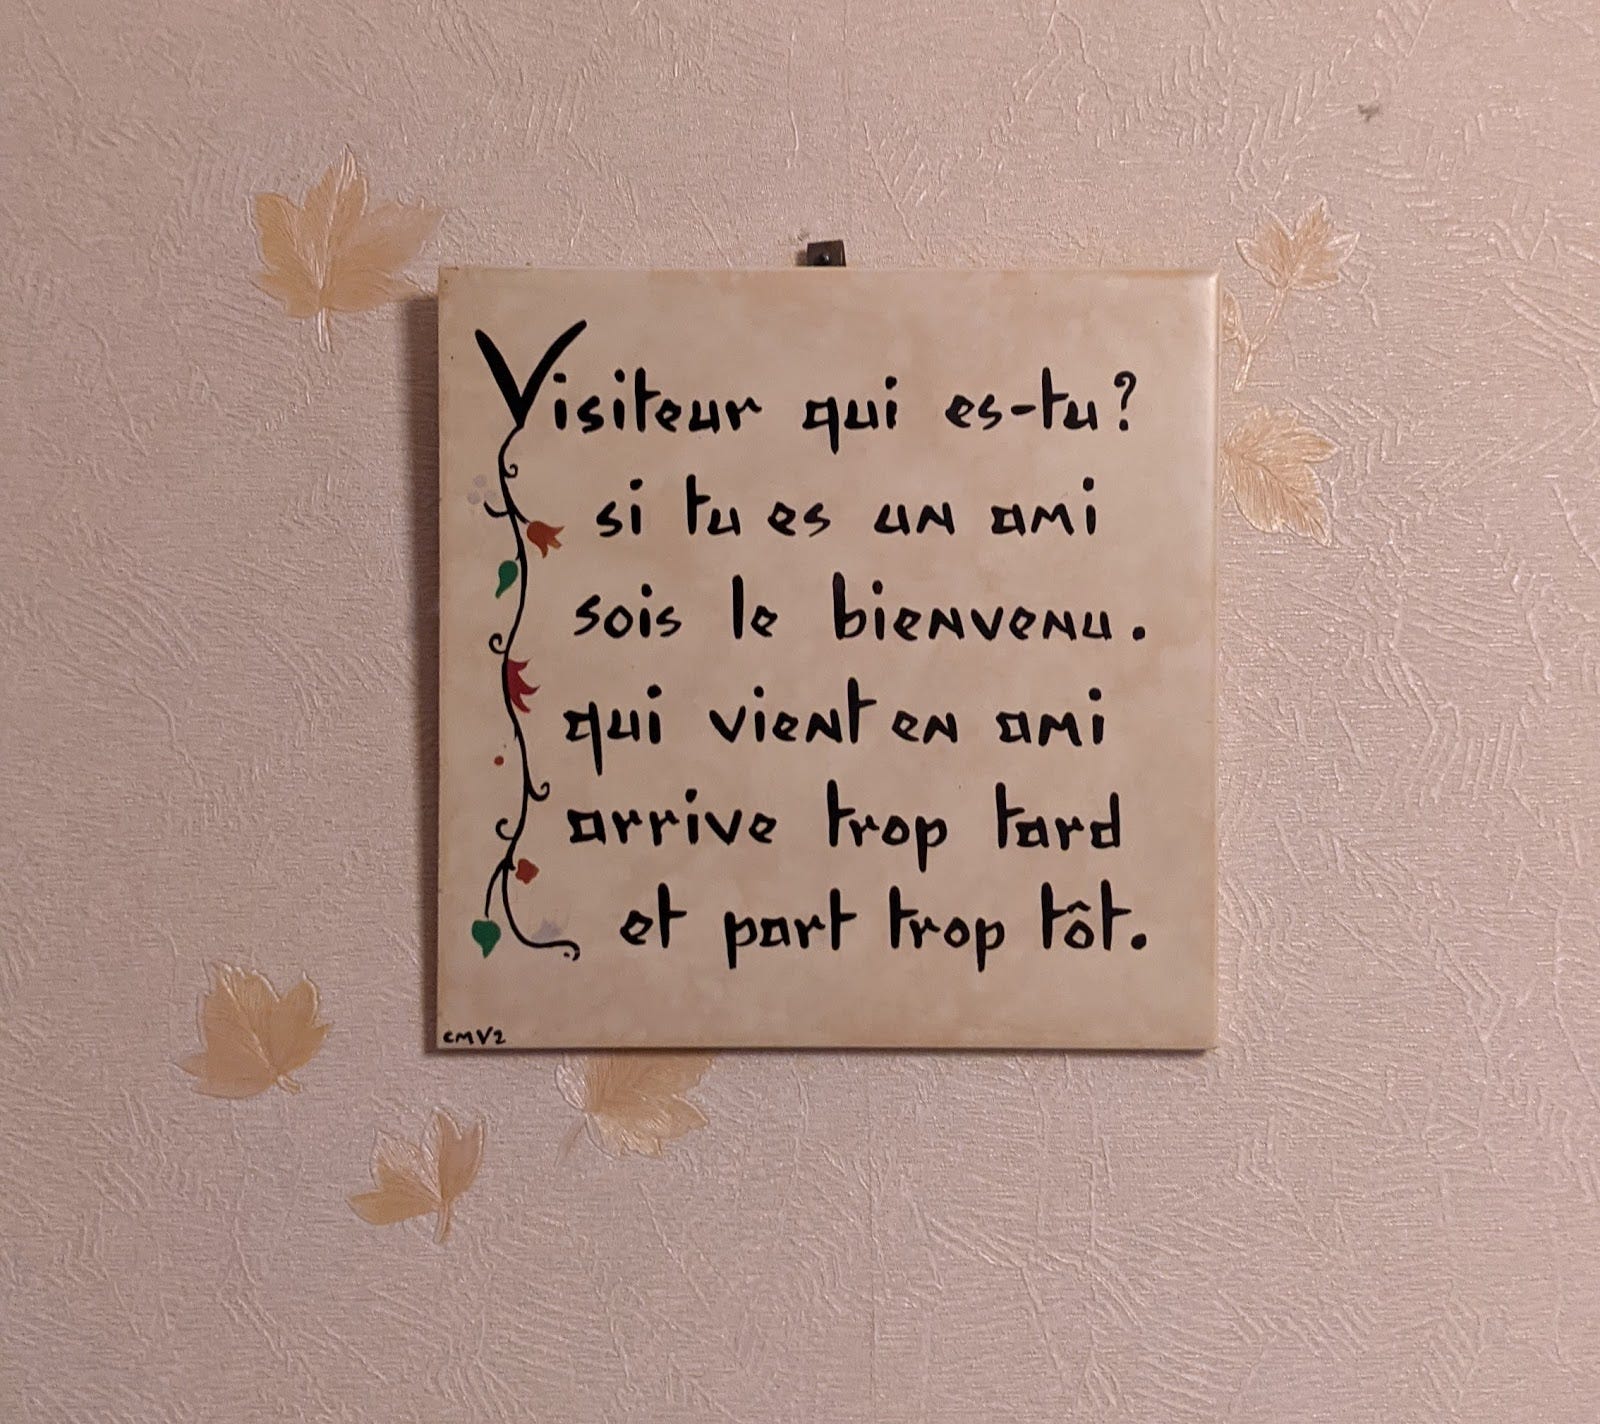 Visiteur qui es-tu?
si tu es un ami
sois le bienvenu.
qui vient en ami
arrive trop tard
et part trop tôt.
CMV2